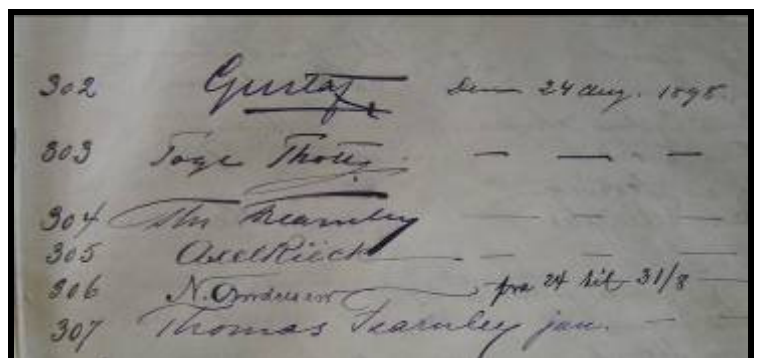 302 Gustaf Den 24 aug. 1898.
303 Tage Thott — — —
304 Thn Fearnley — — —
305 Axel Rück — — —
306 N. Andresen fra 24 til 31/8
307 Thomas Fearnley jun. — —